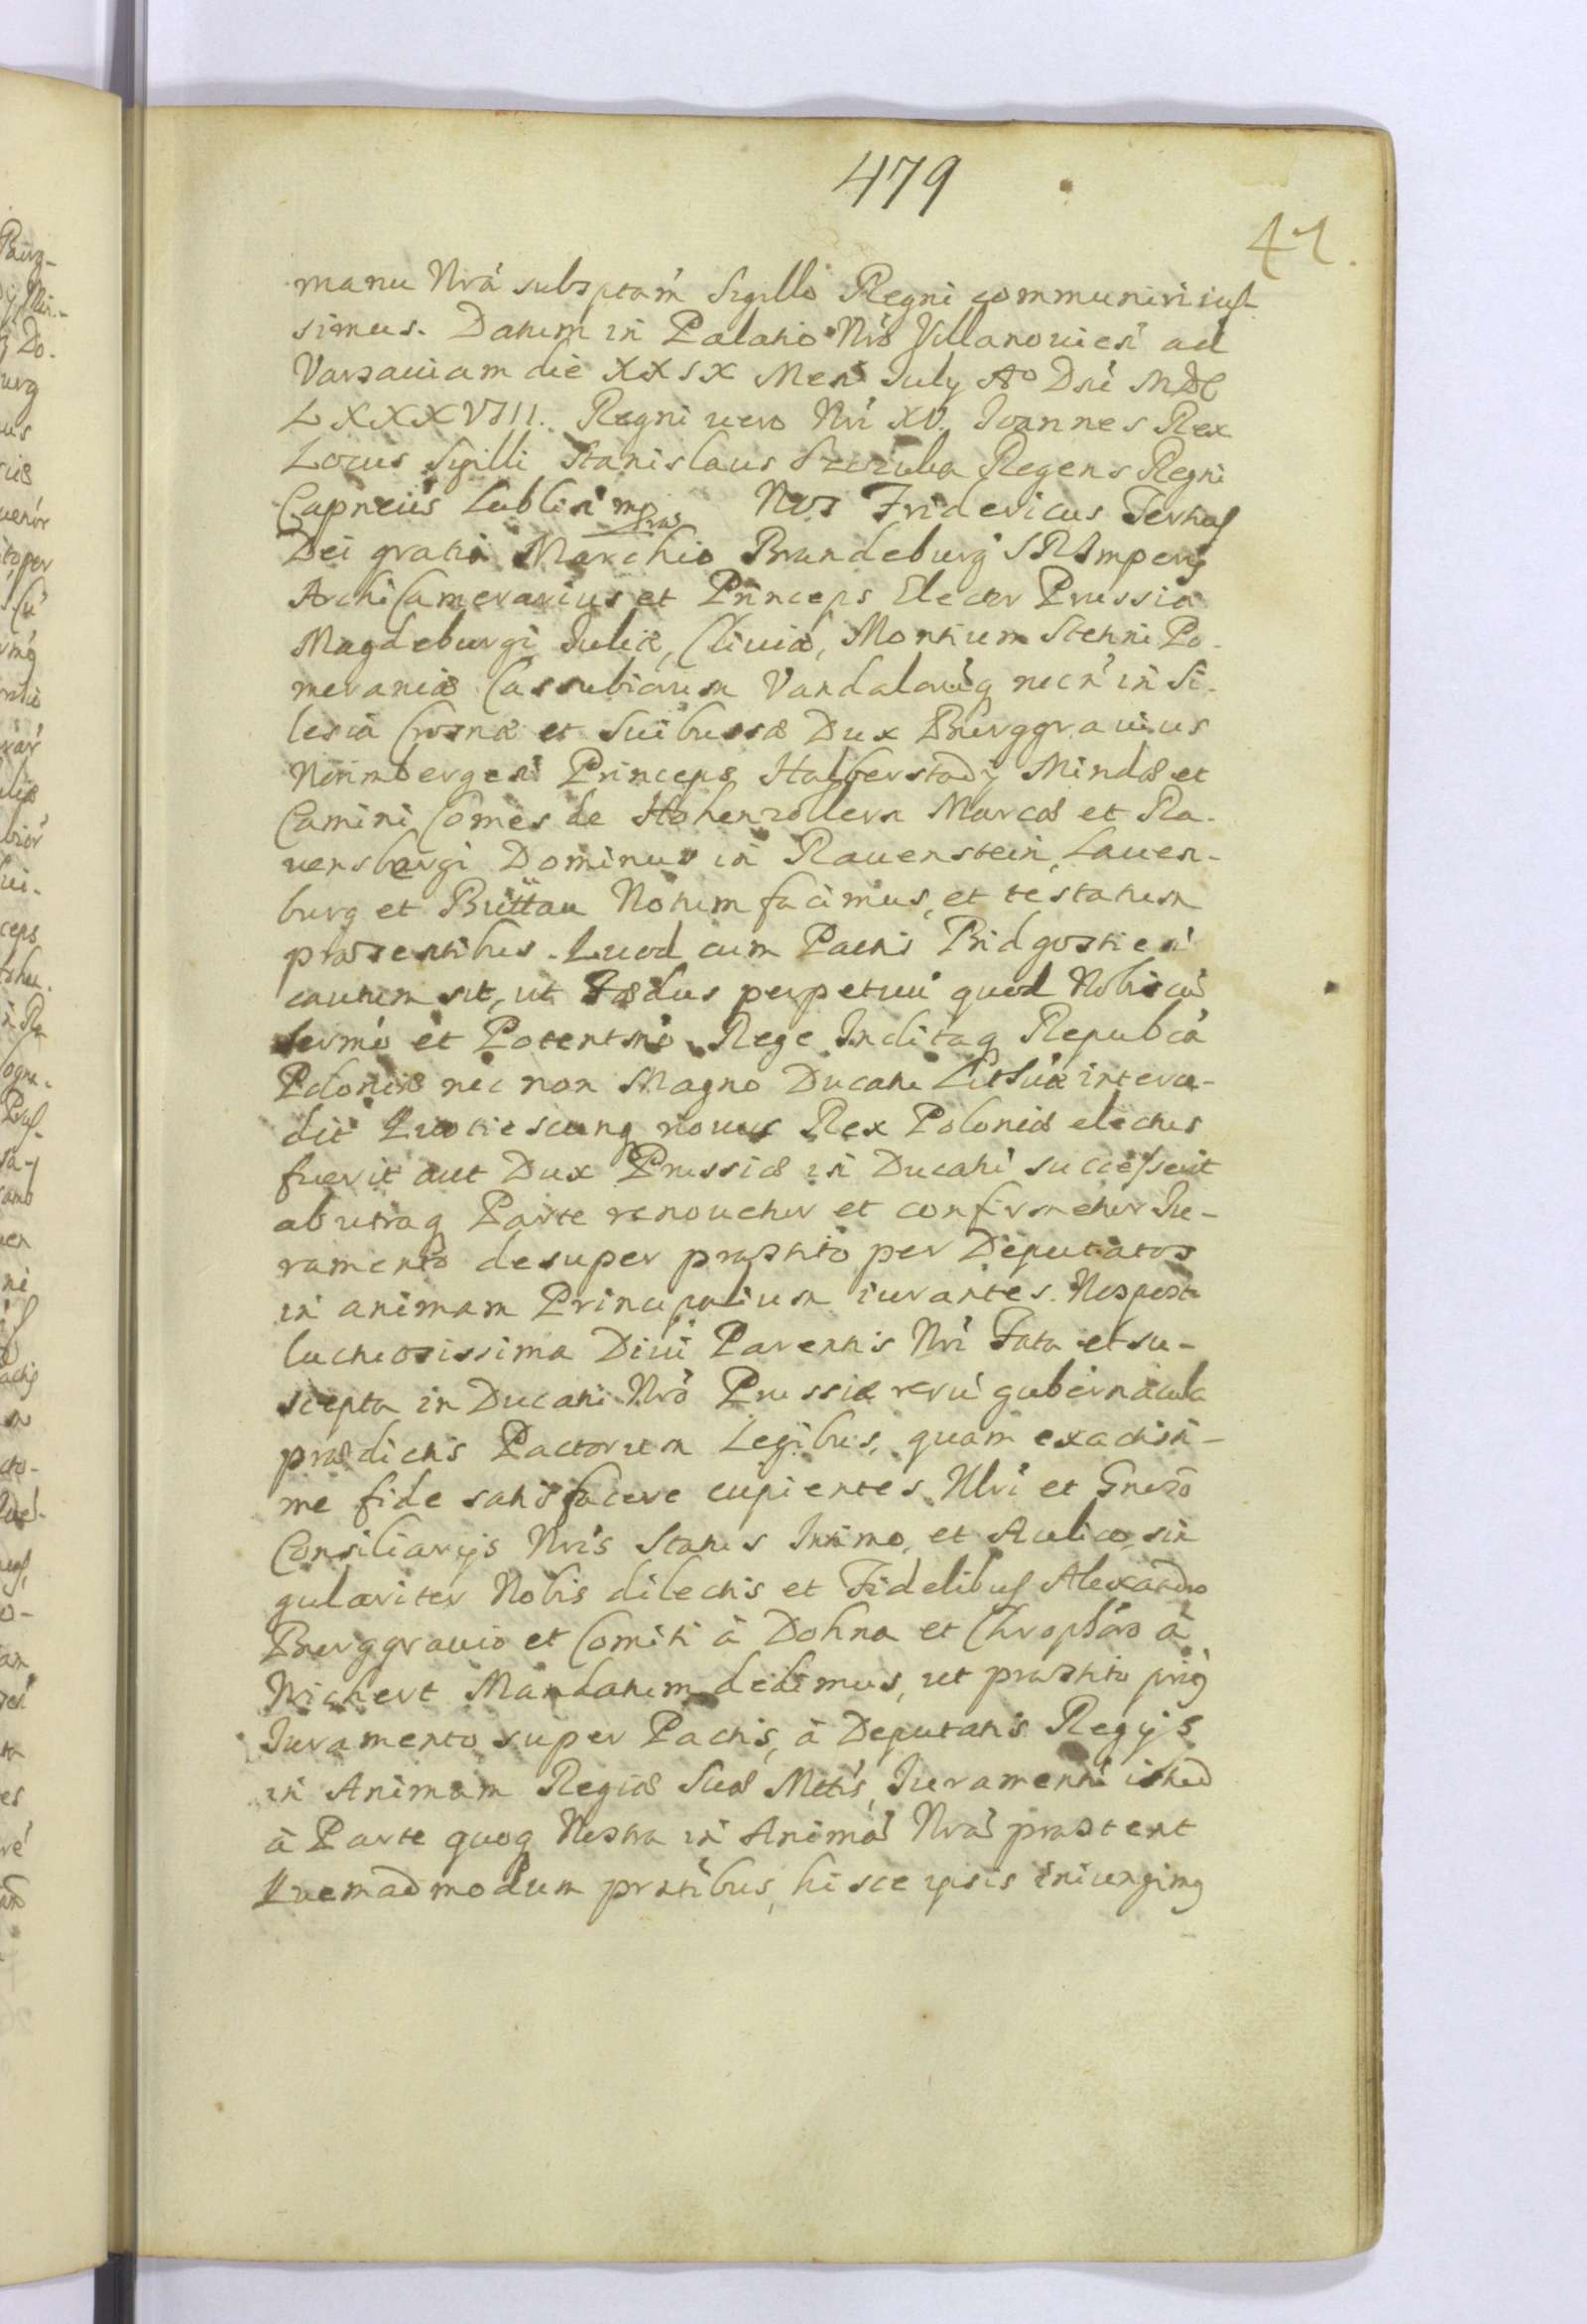 479
41.
manu Nrá subsptam Sigillo Regni communiri iuss
simus. Datum in Palatio Nrô Villanouien ad
Varsauiam die XXIX Men July Aº Dni MDC
LXXXVIII. Regni uero Nri XV. Joannes Rex
Locus Sigilli Stanislaus Szczuka Regens Regni
Capneús Lublin mp Nos Fridericus Tertius
Dei gratia Marchio Brandeburg S R Impery
ArchiCamerarius et Princeps Elector Prussiæ
Magdeburgi Juliæ, Cliuiæ, Montium Stetini Po-
meraniæ Cassubiorum Vandaloruq necn in Si-
lesia Crosnæ et Suibussæ Dux Burggrauius
Norimbergen Princeps Halberstady Mindæ et
Camini Comes de Hohenzollern Marcæ et Ra-
uensbergi Dominus in Rauenstein, Lauen-
burg et Büttau Notum facimus, et testatum
præsentibus. Quod cum Pactis Bidgostien
cautum sit, ut Fædus perpetuu quod Nobis cu
Sermô et Potentmô Rege Inclitaq Repubca
Poloniæ nec non Magno Ducatu Litthuæ interce-
dit Quotiescunq nouus Rex Poloniæ electus
fuerit aut Dux Prussiæ in Ducatu successerit
ab utraq Parte renouetur et confirmetur Ju-
ramento desuper præstito per Deputatos
in animam Principalium iurantes. Nos post
luctuosissima Diui Parentis Nri Fata et su-
scepta in Ducatu Nrô Prussiæ reru gubernacula
prædictis Pactorum Legibus, quam exactissi-
me fide satisfacere cupientes Illri et Gnrso
Consiliarys Nris Status Intimo, et Aulico, sin
gulariter Nobis dilectis et Fidelibus Alexandro
Burggrauio et Comiti à Dohna et Chrophoro à
Wichert Mandatum dedimus, ut præstito priq
Juramento super Pactis, à Deputatis Regys
in Animam Regiæ Suæ Mttis, Juramentu istud
à Parte quoq Nostra in Animā Nrā præstent
Quemadmodum prntibus, hisce ipsis iniungimq